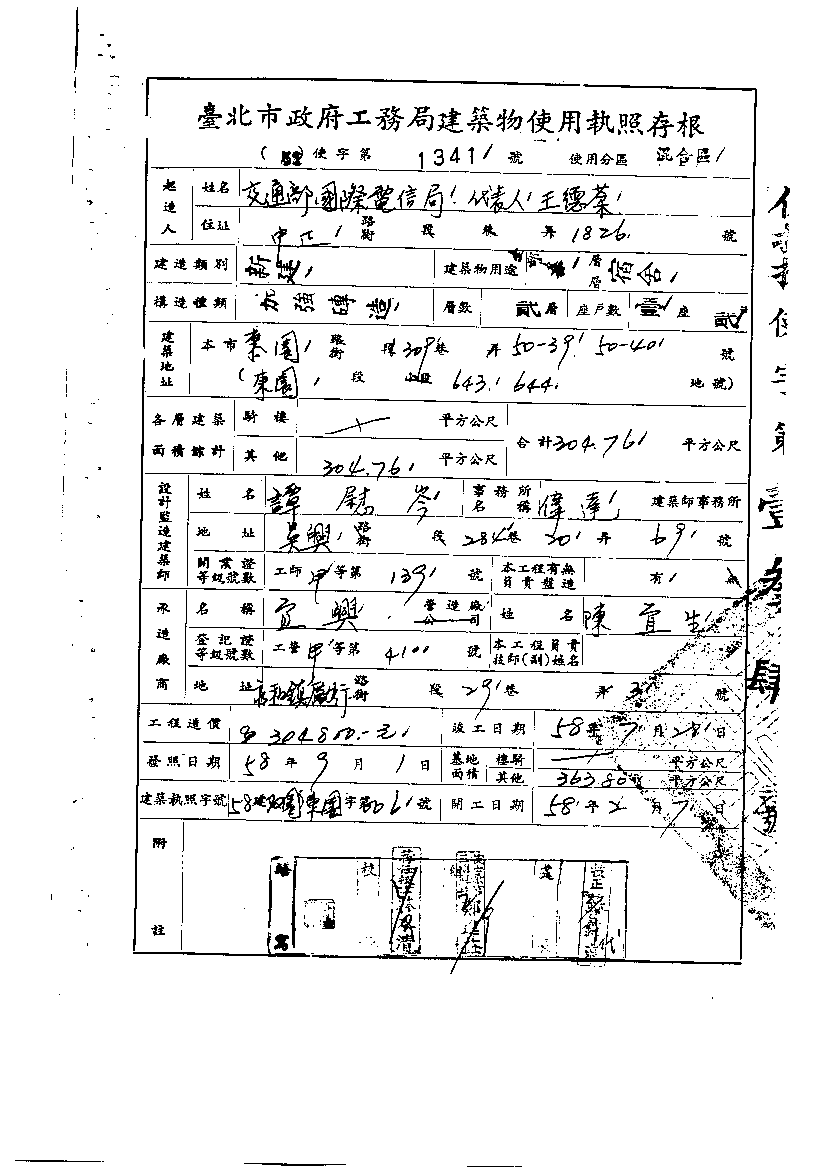 臺北市政府工務局建築物使用執照存根
(58)使字第 1341 號 使用分區 混合區
起造人 姓名 交通部國際電信局 代表人 王德業
住址 中正 路街 段 巷 弄 1826 號
建造類別 新建 建築物用途 層層 宿舍
構造種類 加強磚造 層數 貳層 座戶數 壹座 貳戶
建築地址 本市 東園 路街 段 309巷 弄 50-39 50-40 號
(東園 段 小段 643 644 地號)
各層建築面積總計 騎樓 平方公尺 合計 304.76 平方公尺
其他 304.76 平方公尺
設計監造建築師 姓名 譚 岑 事務所名稱 偉達 建築師事務所
地址 吳興 路街 段 284巷 30弄 69 號
開業證等級號數 工師甲等第 139 號 本工程有無負責監造 有 無
承造廠商 名稱 宜興 營造廠公司 姓名 陳宜生
登記證等級號數 工營甲等第 4100 號 本工程負責技師(副)姓名
地址 永和鎮 路街 段 29巷 弄 3 號
工程造價 304800-元 竣工日期 58年7月28日
發照日期 58年9月1日 基地面積 騎樓 平方公尺
其他 363.80 平方公尺
建築執照字號 58建 東園 字第 061 號 開工日期 58年2月7日
附註
校